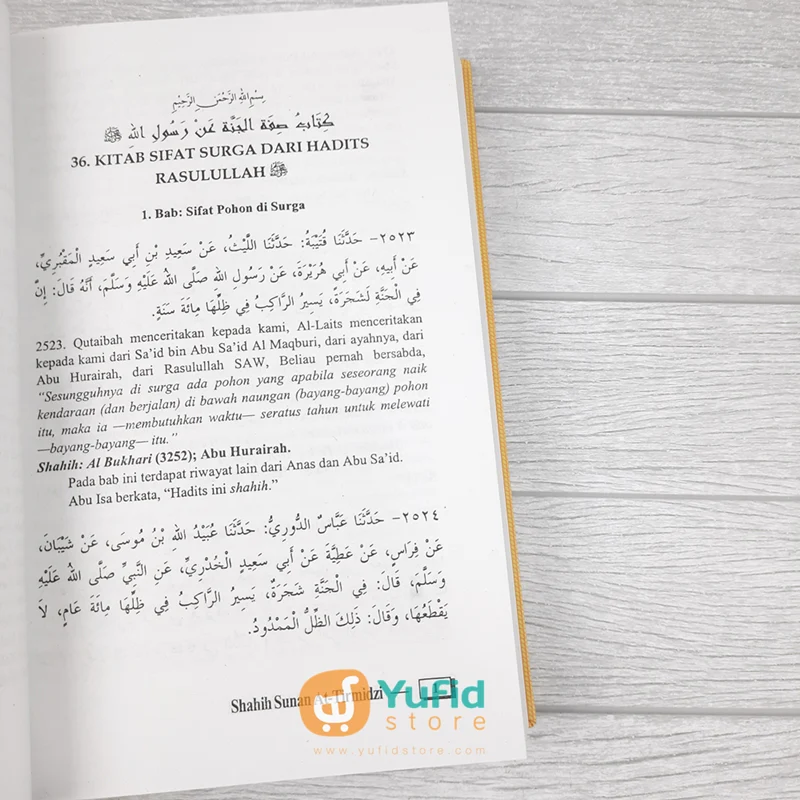 بِسْمِ اللهِ الرَّحْمَنِ الرَّحِيْمِ
كِتَابُ صِفَةِ الْجَنَّةِ عَنْ رَسُولِ اللهِ ﷺ
36. KITAB SIFAT SURGA DARI HADITS
RASULULLAH ﷺ
1. Bab: Sifat Pohon di Surga
٢٥٢٣- حَدَّثَنَا قُتَيْبَةُ: حَدَّثَنَا اللَّيْثُ، عَنْ سَعِيدِ بْنِ أَبِي سَعِيدٍ الْمَقْبُرِيِّ،
عَنْ أَبِيهِ، عَنْ أَبِي هُرَيْرَةَ، عَنْ رَسُولِ اللهِ صَلَّى اللهُ عَلَيْهِ وَسَلَّمَ، أَنَّهُ قَالَ: إِنَّ
فِي الْجَنَّةِ لَشَجَرَةً، يَسِيرُ الرَّاكِبُ فِي ظِلِّهَا مِائَةَ سَنَةٍ.
2523. Qutaibah menceritakan kepada kami, Al-Laits menceritakan
kepada kami dari Sa'id bin Abu Sa'id Al Maqburi, dari ayahnya, dari
Abu Hurairah, dari Rasulullah SAW, Beliau pernah bersabda,
"Sesungguhnya di surga ada pohon yang apabila seseorang naik
kendaraan (dan berjalan) di bawah naungan (bayang-bayang) pohon
itu, maka ia —membutuhkan waktu— seratus tahun untuk melewati
—bayang-bayang— itu."
Shahih: Al Bukhari (3252); Abu Hurairah.
Pada bab ini terdapat riwayat lain dari Anas dan Abu Sa'id.
Abu Isa berkata, "Hadits ini shahih."
٢٥٢٤- حَدَّثَنَا عَبَّاسٌ الدُّورِيُّ: حَدَّثَنَا عُبَيْدُ اللهِ بْنُ مُوسَى، عَنْ شَيْبَانَ،
عَنْ فِرَاسٍ، عَنْ عَطِيَّةَ عَنْ أَبِي سَعِيدٍ الْخُدْرِيِّ، عَنِ النَّبِيِّ صَلَّى اللهُ عَلَيْهِ
وَسَلَّمَ، قَالَ: فِي الْجَنَّةِ شَجَرَةٌ، يَسِيرُ الرَّاكِبُ فِي ظِلِّهَا مِائَةَ عَامٍ، لَا
يَقْطَعُهَا، وَقَالَ: ذَلِكَ الظِّلُّ الْمَمْدُودُ.
Shahih Sunan At-Tirmidzi —
Yufid
store
www.yufidstore.com